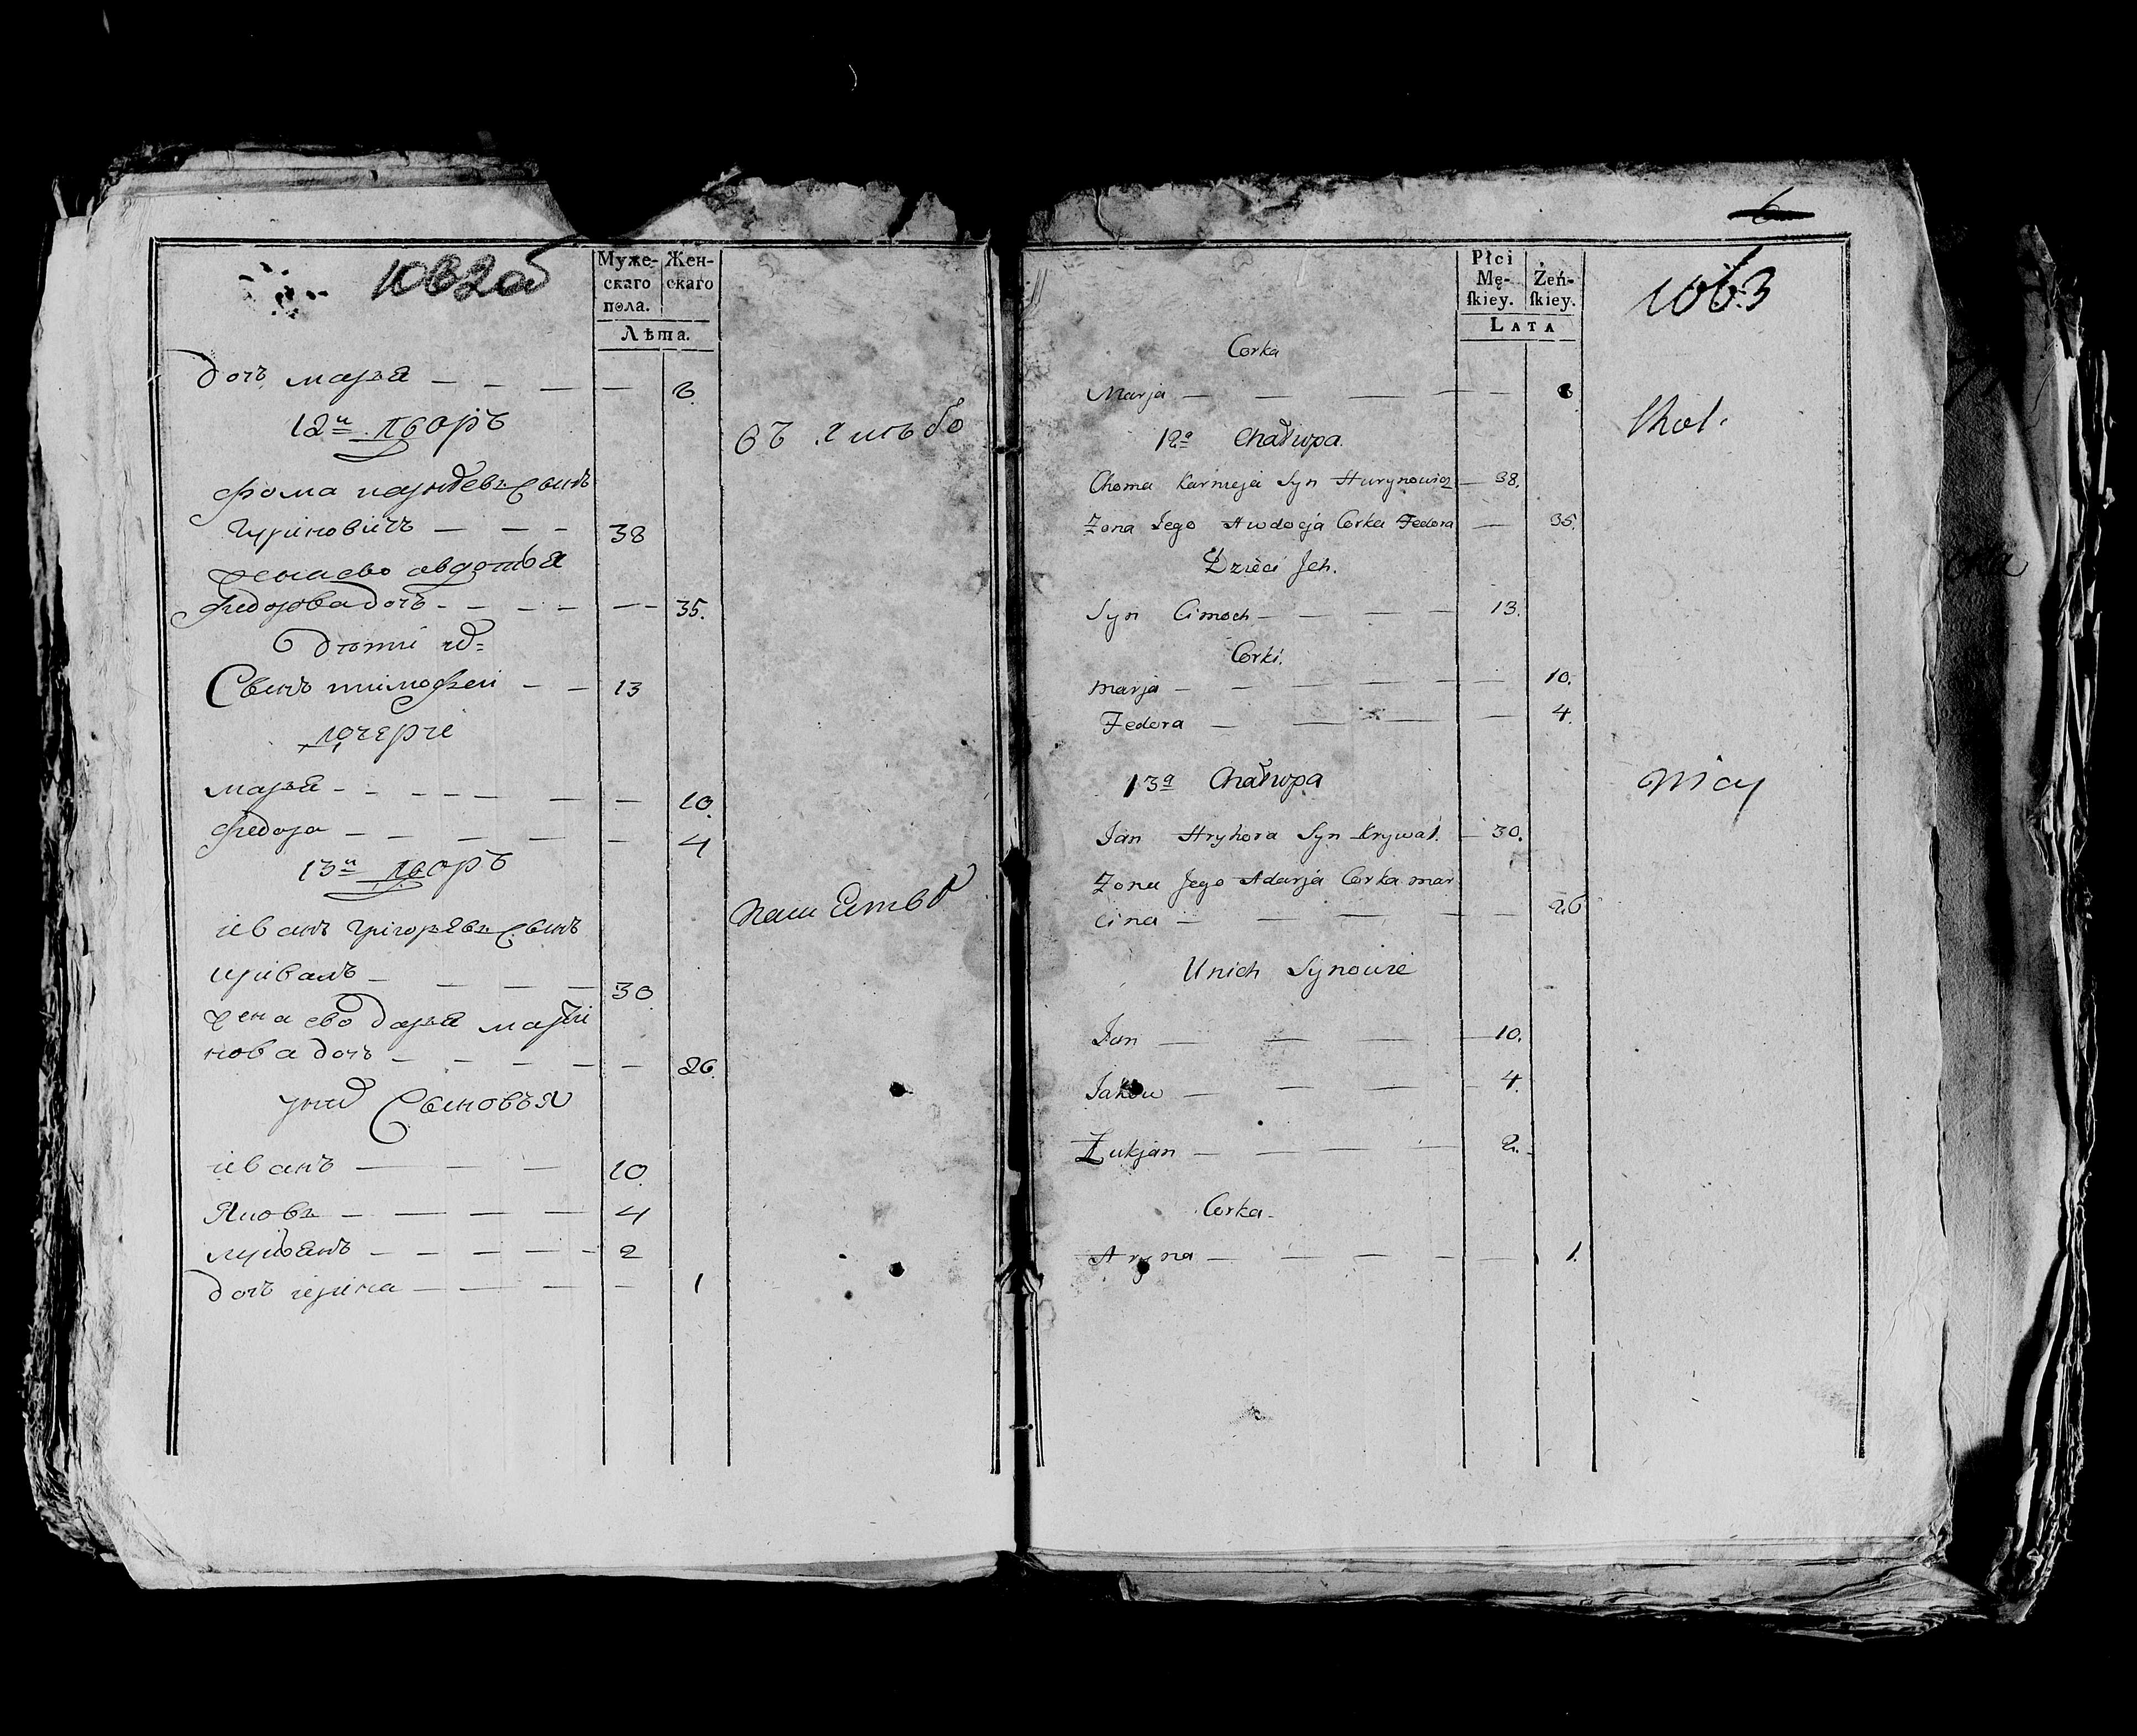 Муже-
скаго
пола.
Жен-
скаго
Лѣта.
дочь марья
12й дворъ
фома
гуриновичъ 38
жена ево авдотья
федорова дочь 35.
дѣти их
Сынъ тимофей 13
дочерҍи
марья 10.
федора 4
13й дворъ
иванъ григорьевъ Сынъ
криваль 30
жена ево дарья марти
нова дочь 26.
у них Сыновья
иванъ 10.
Яковъ 4
лукьянъ 2
дочь ирина 1
1063
Płci
Mę-
ſkiey.
Żeń-
ſkiey.
LATA
Corka
Marja
12a Chałupa.
Choma Karnieja Syn Hurynowicz 38.
Żona Jego Awdocja Corka Fedora 35.
Dzieci Jch.
Syn Cimoch 13.
Corki.
Marja 10.
Fedora 4.
13a Chałupa
Jan Hryhora Syn Krywal. 30.
Żona Jego Adarja Corka Mar
cina 26
Unich Synowie
Jan 10.
Jakow 4.
Łukjan 2.
Corka
Aryna 1.